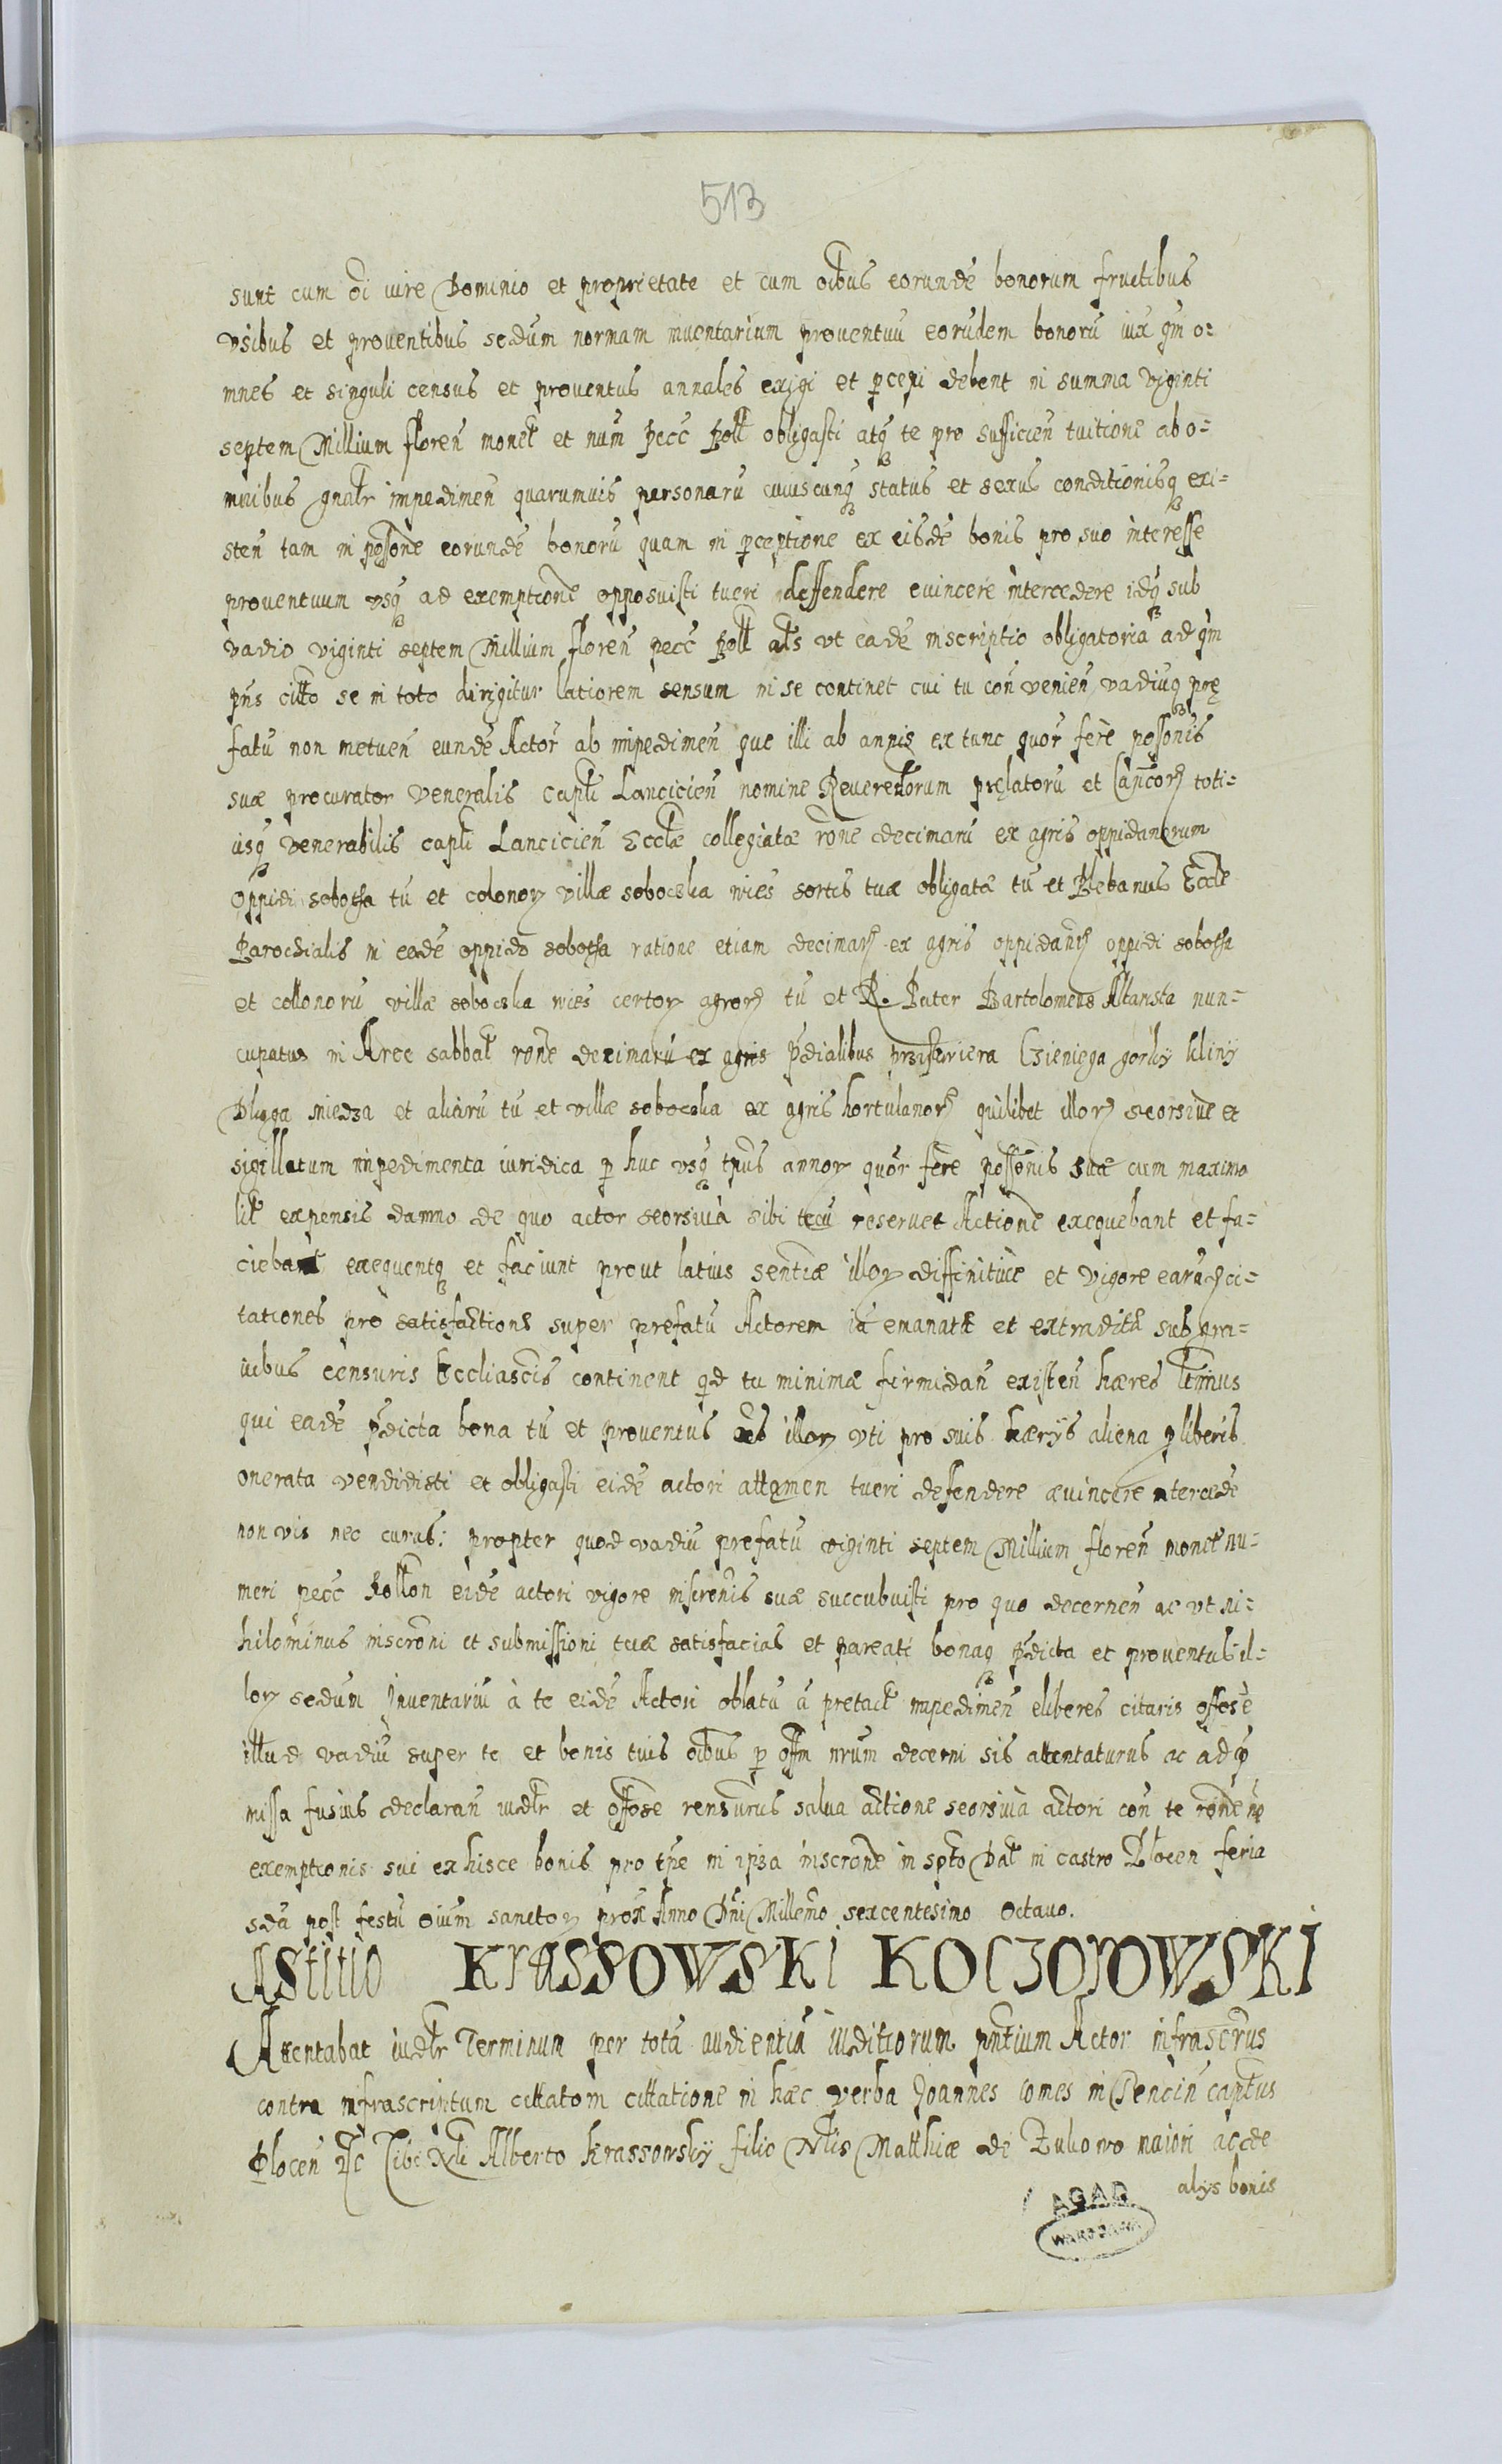 513
sunt cum oi iure Dominio et proprietate et cum oibus eorundē bonorum fructibus
vsibus et prouentibus sedum normam inuentarium prouentuū eorūdem bonorū iux qm o=
mnes et singuli census et prouentus annales exigi et pcepi debent in summa viginti
septem Millium floren monet et num pecc Poll obligasti atq te pro sufficien tuitione ab o=
mnibus gnalr impedimen quarumuis personarū cuiuscunq status et sexus conditionisq exi=
sten tam in possone eorundē bonorū quam in pceptione ex eisdē bonis pro suo interesse
prouentuum vsq ad exemptionē opposuisti tueri deffendere euincere intercedere idq sub
vadio viginti septem Millium floren pecc Poll als vt eadē inscriptio obligatoria ad qm
pns citto se in toto dirigitur latiorem sensum in se continet cui tu con venien vadiuq prę
fatū non metuen eundē Actor ab impedimen que illi ab annis ex tunc quor ferè possonis
suæ procurator veneralis capli Lancicien nomine Reuerendorum prelatorū et Cancor toti=
usq venerabilis capli Lancicien Ecclæ collegiatæ rone decimarū ex agris oppidanorum
oppidi sobotha tū et colonor villæ sobocska wies sortis tuæ obligatæ tū et Plebanus Eccle
Parochialis in eadē oppido sobotha ratione etiam decimar ex agris oppidanr oppidi sobotha
et collonorū villæ sobocska wies certor agror tū et R. Pater Bartolomeus Altarista nun=
cupatus in Arce sabbat rone decimarū ex agris pdialibus Czieniega gorky kliny
Dluga miedza et aliarū tū et villæ sobocska ex agris hortulanor quilibet illor seorsiuè et
sigillatum impedimenta iuridica p huc vsq tpus annor quor ferè possonis suæ cum maximo
lit expensis damno de quo actor seorsiuà sibi tecū reseruet Actionē exequebant et fa=
ciebant exequentq et faciunt prout latius sentiæ illor diffinitiuè et vigore earū ci=
tationes pro satisfactione super prefatū Actorem iā emanatæ et extraditæ sub gra=
uibus censuris Eccliascis continent qd tu minimæ formidan existen hæres ltimus
qui eadē pdicta bona tū et prouentus illor vti pro suis hærijs aliena p liberis
onerata vendidisti et obligasti eidē actori attamen tueri defendere æuincere intercedē
non vis nec curas: propter quod vadiū prefatū viginti septem Millium floren monet nu=
meri pecc Pollon eidē actori vigore inscronis suæ succubuisti pro quo decernen ac vt ni=
hilominus inscroni et submissioni tuæ satisfacias et pareati bonaq pdicta et prouentus il=
lor sedum Inuentariū à te eidē Actori oblatū à pretact impedimen eliberes citaris offose
illud vadiū super te et bonis tuis oibus p offm nrum decerni sis attentaturus ac ad p
missa fusius declaran iudlr et offose rensurus salua actione seorsiuà actori con te rone no
exemptionis sui ex hisce bonis pro tpe in ipsa inscrone in spto Dat in castro Plocen feria
sda post festū oium sanctor prox Anno Dni Millemo sexcentesimo octauo.
Astitio Krassowski Koczorowski
Attentabat iudlr Terminum per totā audientiā iuditiorum pntium Actor infrascrus
contra infrascriptum cittatom cittatione in hæc verba Joannes comes in Tencin captus
Plocen Tibi Nli Alberto Krassowsky filio Nlis Matthiæ de Zukowo maiori ac de
alys bonis
AGAD
WARSZAWA